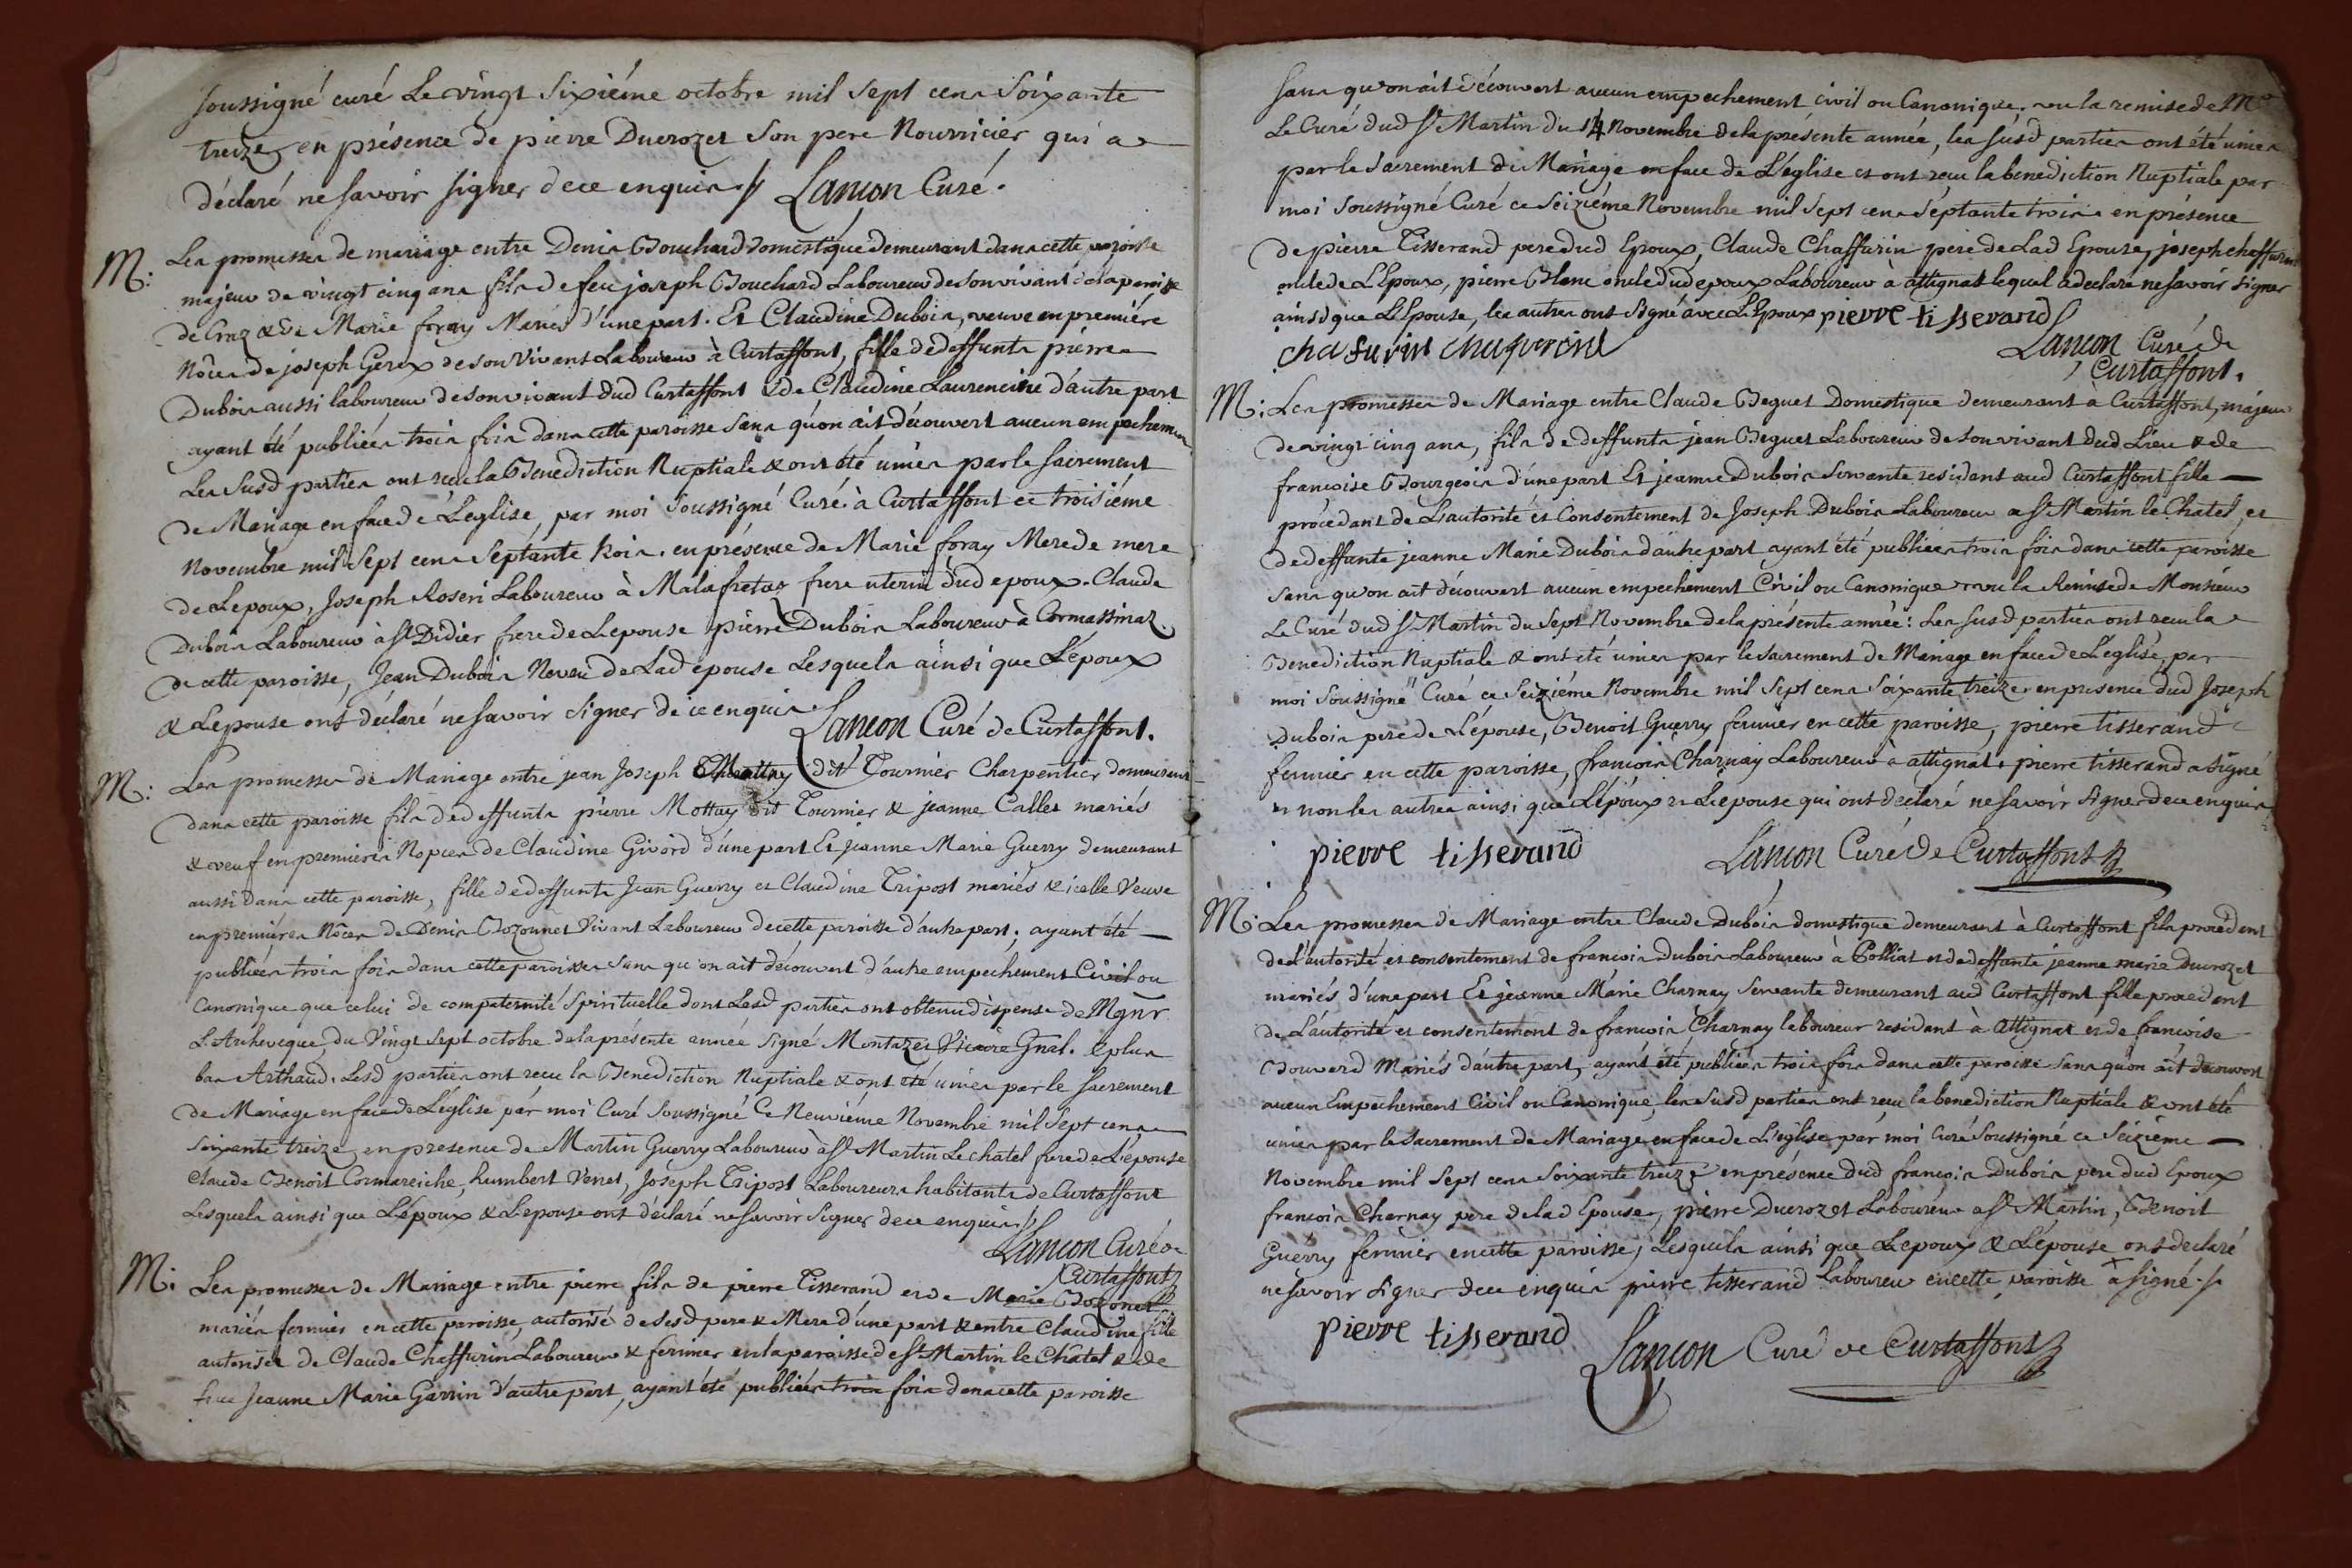 soussigné curé Le vingt Sixiéme octobre mil Sept cens Soixante
treize, en présence de pierre Ducrozet Son pere Nourricier qui a
déclaré ne Savoir signer de ce enquis // Lançon Curé.
M: Les promesses de mariage entre Denis Bouchard domestique demeurant dans cette paroisse
majeur de vingt cinq ans fils de feu joseph Bouchard Laboureur de son vivant de la paroisse
de Cras & de Marie foray Mariés d'une part. Et Claudine Dubois, veuve en premiére
Nôces de joseph Gerox de son Vivant Laboureur à Curtaffont, fille de deffunts pierre
Dubois aussi laboureur de son vivant dud Curtaffont & de Claudine Laurencine d'autre part
ayant été publiées trois fois dans cette paroisse Sans qu'on ait découvert aucun empechement
Les Susd parties ont recu la Benediction Nuptiale & ont été unies par le Sacrement
de Mariage en face de L'eglise, par moi Soussigné Curé à Curtaffont ce troisiéme
Novembre mil Sept cens Septante trois. en présence de Marie foray Mere de mere
de Lepoux, Joseph Roseri Laboureur à Malafretaz frere uterin dud epoux. Claude
Dubois Laboureur à St Didier frere de Lepouse pierre Dubois Laboureur à Cormassinaz.
de cette paroisse, Jean Dubois Neveu de Lad epouse Lesquels ainsi que L'époux
& Lepouse ont déclaré ne Savoir Signer de ce enquis
Lançon Curé de Curtaffont.
M: Les promesses de Mariage entre jean Joseph Mottuy dit Tournier Charpentier demeurant
dans cette paroisse fils de deffunts pierre Mottuy dit Tournier & jeanne Callet mariés
& veuf en premieres Nopces de Claudine Givord d'une part Et jeanne Marie Guerry demeurant
aussi dans cette paroisse, fille de deffunts Jean Guerry et Claudine Tripost mariés & icelle Veuve
en premiéres Nôces de Denis Bozonnet Vivant Laboureur de cette paroisse d'autre part; ayant été
publiées trois fois dans cette paroisse Sans qu'on ait découvert d'autre empechement Civil ou
Canonique que celui de compaternité Spirituelle dont Lesd parties ont obtenu dispense de Mgnr
L'Archeveque, du Vingt Sept octobre de la présente année Signé Montazet Vicaire Gnal. & plus
bas Arthaud. Lesd parties ont recu la Benediction Nuptiale & ont été unies par le Sacrement
de Mariage en face de L'église par moi Curé Soussigné Ce Neuviéme Novembre mil Sept cens
Soixante treize, en presence de Martin Guerry Laboureur à St Martin Le chatel frere de L'épouse
Claude Benoit Cormareiche, humbert Venet, Joseph Tripost Laboureurs habitants de Curtaffont
Lesquels ainsi que L'époux & L'epouse ont déclaré ne Savoir Signer de ce enquis //
Lançon Curé de
Curtaffont
M: Les promesses de Mariage entre pierre fils de pierre Tisserand et de Marie Bozonet
mariés fermier en cette paroisse, autorisé de Sesd pere & Mere d'une part & entre Claudine fille
autorisée de Claude Chaffurin Laboureur & fermier en la paroisse de St Martin le Châtel & de
feue Jeanne Marie Garrin d'autre part, ayant été publiées trois fois dans cette paroisse
Sans qu'on ait découvert aucun empechement civil ou Canonique. vu la remise de Mr
Le Curé dud St Martin du 14 Novembre de la présente année, les Susd parties ont été unies
par le Sacrement de Mariage en face de L'église et ont recu la benediction Nuptiale par
moi Soussigné Curé ce Seiziéme Novembre mil Sept cens Septante trois en présence
de pierre Tisserand pere dud Epoux, Claude Chaffurin pere de Lad Epouse, joseph chaffurin
oncle de L'Epoux, pierre Blanc oncle dud epoux Laboureur à attignat lequel a declaré ne Savoir Signer
ainsi que L'Epouse, les autres ont Signé avec L'Epoux pierre tisserand
chafurin chaferin Lançon Curé de
Curtaffont.
M: Les promesses de Mariage entre Claude Beguet Domestique demeurant à Curtaffont, májeur
de vingt cinq ans, fils de deffunts jean Beguet Laboureur de Son vivant dud Lieu & de
francoise Bourgeois d'une part Et jeanne Dubois Servante residant aud Curtaffont fille
procedant de L'autorité et Consentement de Joseph Dubois Laboureur a St Martin le Chatel, et
de deffunte jeanne Marie Dubois d'autre part ayant été publiées trois fois dans cette paroisse
Sans qu'on ait découvert aucun empechement Civil ou Canonique vu la Remise de Monsieur
Le Curé dud St Martin du Sept Novembre de la présente année: Les Susd parties ont recu la
Benediction Nuptiale & ont été unies par le Sacrement de Mariage en face de L'eglise, par
moi Soussigné Curé ce Seiziéme Novembre mil Sept cens Soixante treize en presence dud Joseph
Dubois pere de L'épouse, Benoit Guerry fermier en cette paroisse, pierre tisserand
fermier en cette paroisse, francois Charnay Laboureur à attignat. pierre tisserand a signé
et non les autres ainsi que L'époux et L'epouse qui ont declaré ne Savoir Signer de ce enquis
pierre tisserand Lançon Curé de Curtaffont
M: Les promesses de Mariage entre Claude Dubois domestique demeurant à Curtaffont fils procedant
de L'autorité et consentement de francois Dubois Laboureur à Polliat et de deffunte jeanne marie Ducrozet
mariés d'une part Et jeanne Marie Charnay Servante demeurant aud Curtaffont fille procedant
de L'autorité et consentement de francois Charnay laboureur residant à Attignat et de francoise
Bouverd Mariés d'autre part, ayant été publiées trois fois dans cette paroisse Sans qu'on ait decouvert
aucun Empechement Civil ou Canonique, les Susd parties ont recu la benediction Nuptiale & ont été
unies par le Sacrement de Mariage en face de L'eglise par moi Curé Soussigné ce Seiziéme
Novembre mil Sept cens Soixante treize en présence dud francois Dubois pere dud Epoux
francois Charnay pere de lad Epouse, pierre Ducrozet Laboureur a St Martin, Benoit
Guerry fermier en cette paroisse, Lesquels ainsi que Lepoux & L'épouse ont declaré
ne Savoir Signer de ce enquis pierre tisserand Laboureur en cette paroisse a signé
pierre tisserand Lançon Curé de Curtaffont